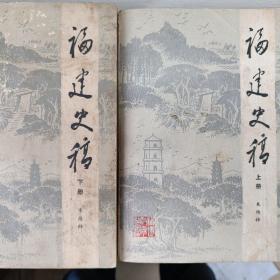 福建史稿
下册
朱维幹
福建史稿
上册
朱维幹